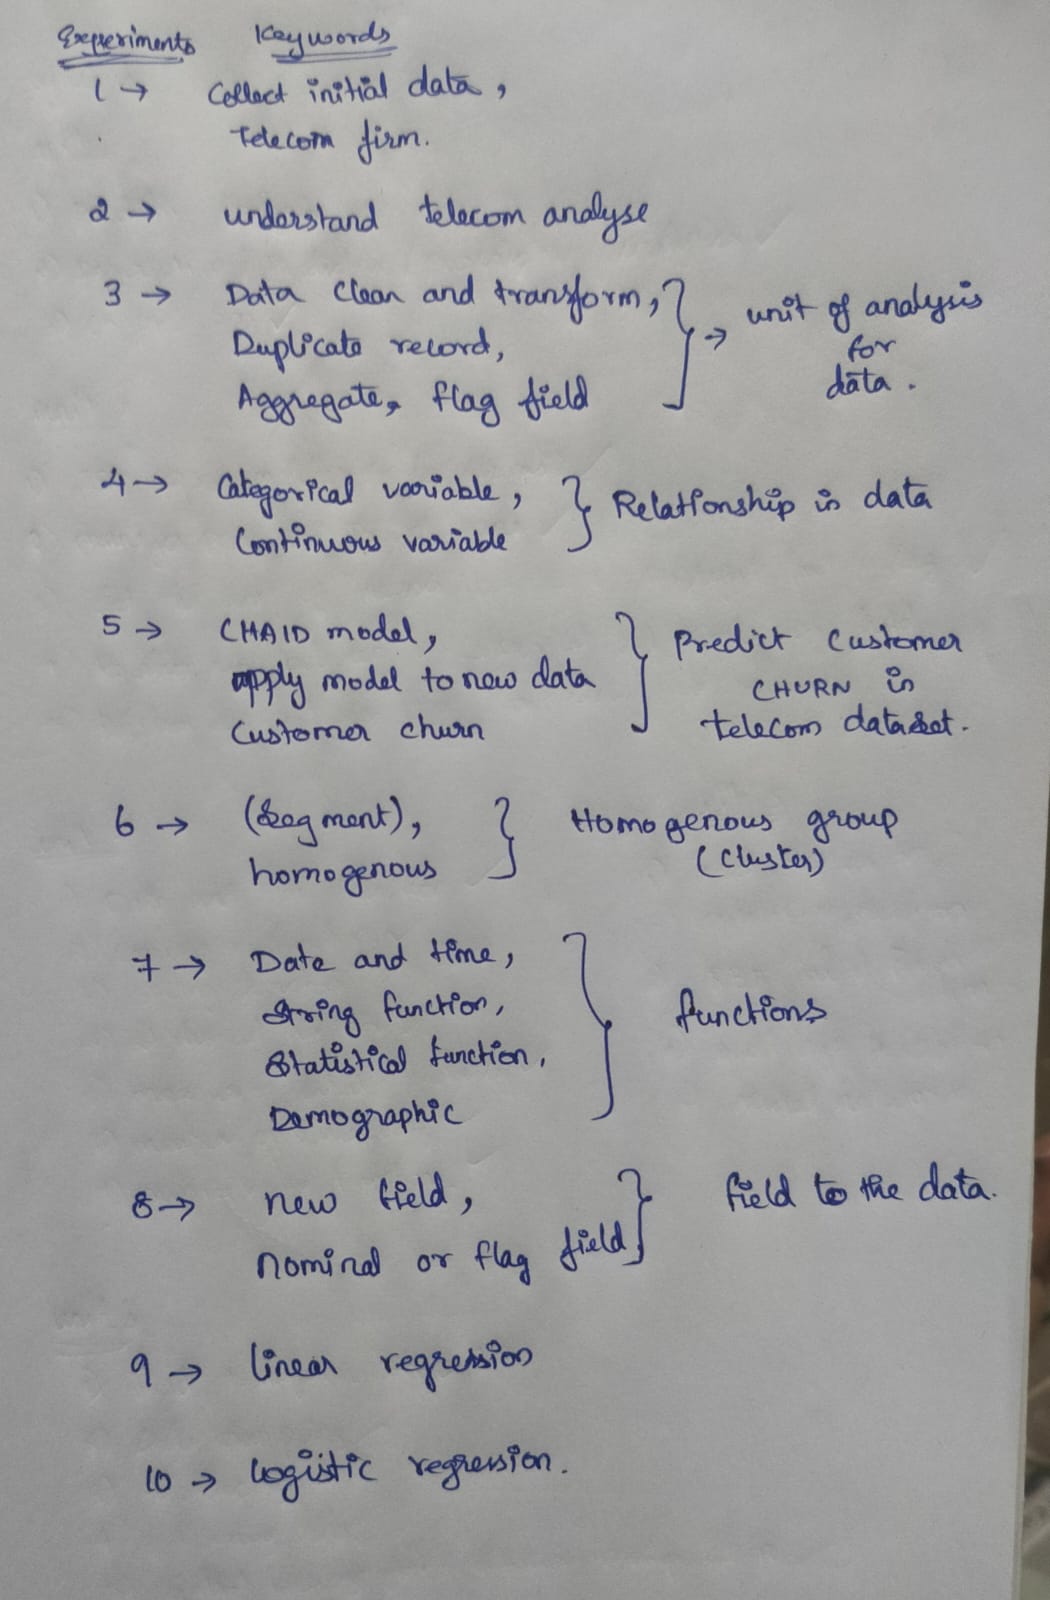 Experiments Keywords
1 → Collect initial data,
Telecom firm.
2 → understand telecom analyse
3 → Data clean and transform,
Duplicate record,
Aggregate, flag field
} → unit of analysis
for
data.
4 → Categorical variable,
Continuous variable
} Relationship in data
5 → CHAID model,
apply model to new data
Customer churn
} Predict Customer
CHURN in
telecom dataset.
6 → (Segment),
homogenous
} Homogenous group
(Cluster)
7 → Date and time,
String function,
Statistical function,
Demographic
} functions
8 → new field,
nominal or flag field
} field to the data.
9 → linear regression
10 → logistic regression.